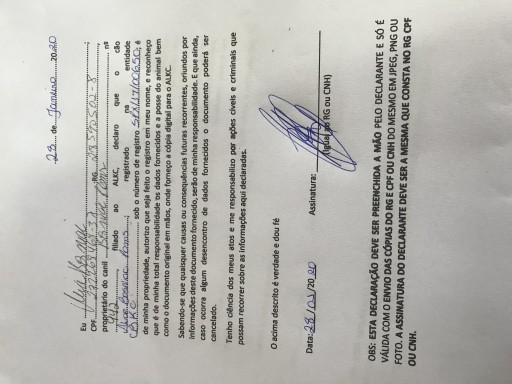 23 de Janeiro 20 20
Eu
CPF RG
proprietário do canil nº
filiado ao ALKC, declaro que o cão
registrado na entidade
sob o número de registro é
de minha propriedade, autorizo que seja feito o registro em meu nome, e reconheço
que é de minha total responsabilidade os dados fornecidos e a posse do animal bem
como o documento original em mãos, onde forneço a cópia digital para o ALKC.
Sabendo-se que quaisquer causas ou consequências futuras recorrentes, oriundos por
informações deste documento fornecido, serão de minha responsabilidade. E que ainda,
caso ocorra algum desencontro de dados fornecidos o documento poderá ser
cancelado.
Tenho ciência dos meus atos e me responsabilizo por ações cíveis e criminais que
possam recorrer sobre as informações aqui declaradas.
O acima descrito é verdade e dou fé
Data: 20 20 Assinatura:
(Igual ao RG ou CNH)
OBS: ESTA DECLARAÇÃO DEVE SER PREENCHIDA A MÃO PELO DECLARANTE E SÓ É
VÁLIDA COM O ENVIO DAS CÓPIAS DO RG E CPF OU CNH DO MESMO EM JPEG, PNG OU
FOTO. A ASSINATURA DO DECLARANTE DEVE SER A MESMA QUE CONSTA NO RG CPF
OU CNH.